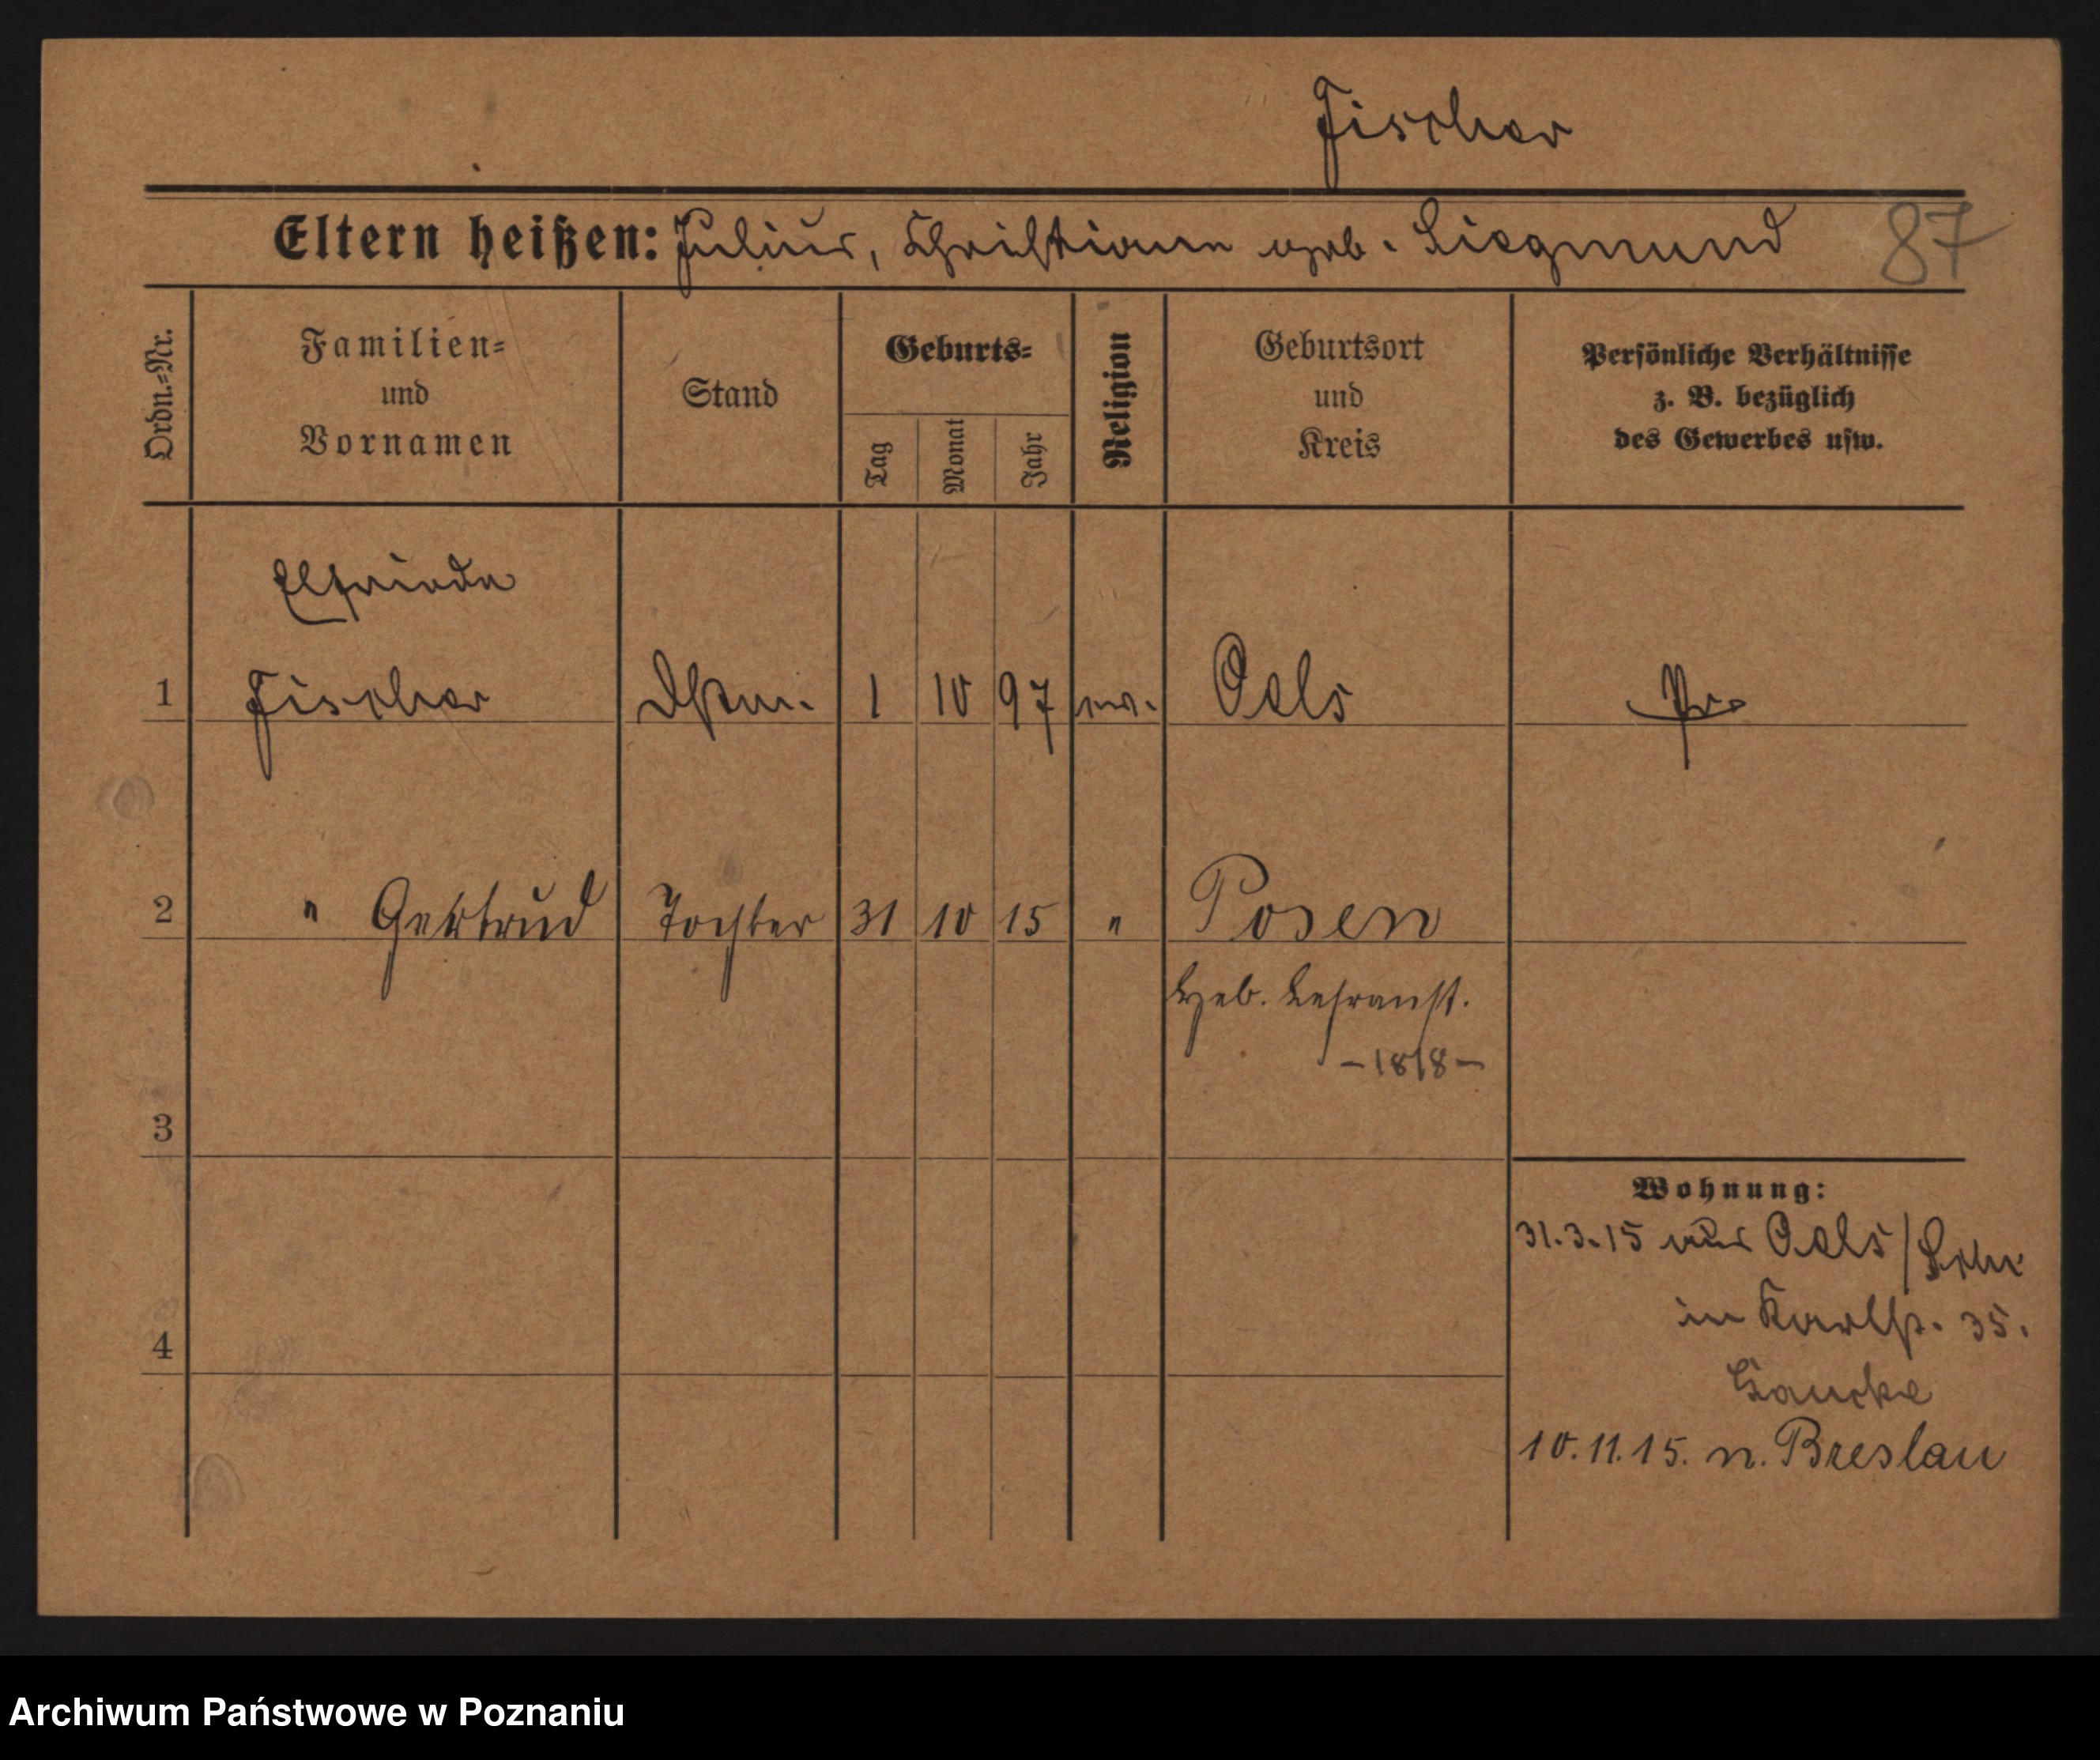 Fischer
Eltern heißen: Julius, Christiane geb. Siegmund 87
Ordn.-Nr.
Familien-
und
Vornamen
Stand
Geburts-
Tag
Monat
Jahr
Religion
Geburtsort
und
Kreis
Persönliche Verhältnisse
z. B. bezüglich
des Gewerbes usw.
Elfriede
1 Fischer Dstm. 1 10 97 ev. Oels Pr
2 " Gertrud Tochter 31 10 15 " Posen
Heb. Lehranst.
- 1818 -
3
Wohnung:
31.3.15 aus Oels /
in Karlstr. 35.
4
10.11.15. n. Breslau
Archiwum Państwowe w Poznaniu